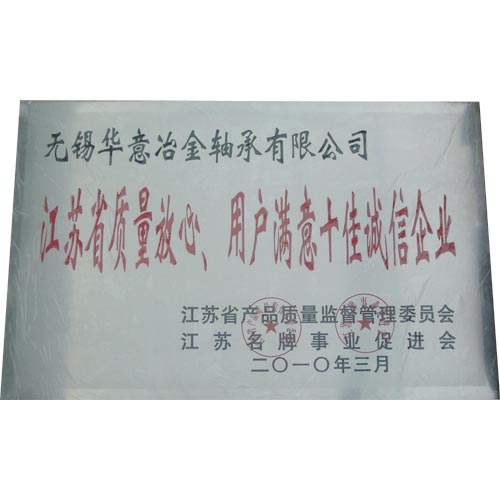 无锡华意冶金轴承有限公司
江苏省质量放心、用户满意十佳诚信企业
江苏省产品质量监督管理委员会
江苏名牌事业促进会
二〇一〇年三月